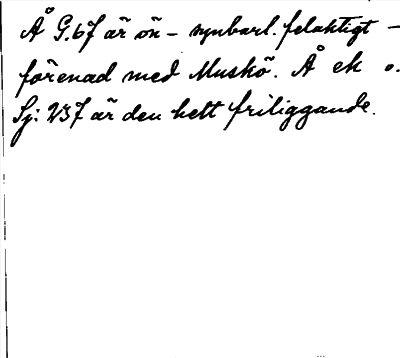 Å G.67 är ön - synbarl. felaktigt -
förenad med Muskö. Å ek o.
Sj: 237 är den helt friliggande.